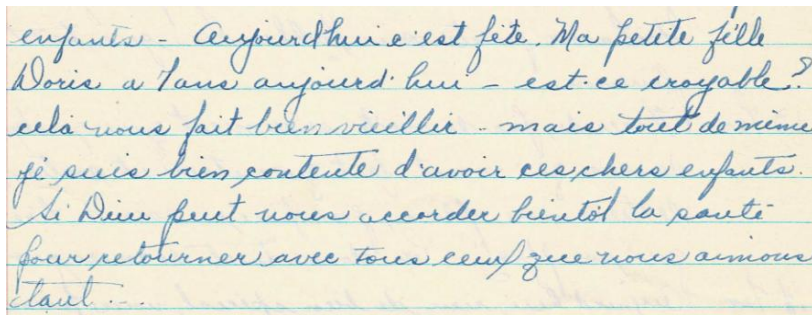 enfants - Aujourd'hui c'est fête. Ma petite fille
Doris a 7 ans aujourd'hui - est-ce croyable?
cela nous fait bien vieillir - mais tout de même
je suis bien contente d'avoir ces chers enfants.
Si Dieu peut nous accorder bientôt la santé
pour retourner avec tous ceux que nous aimons
tant...